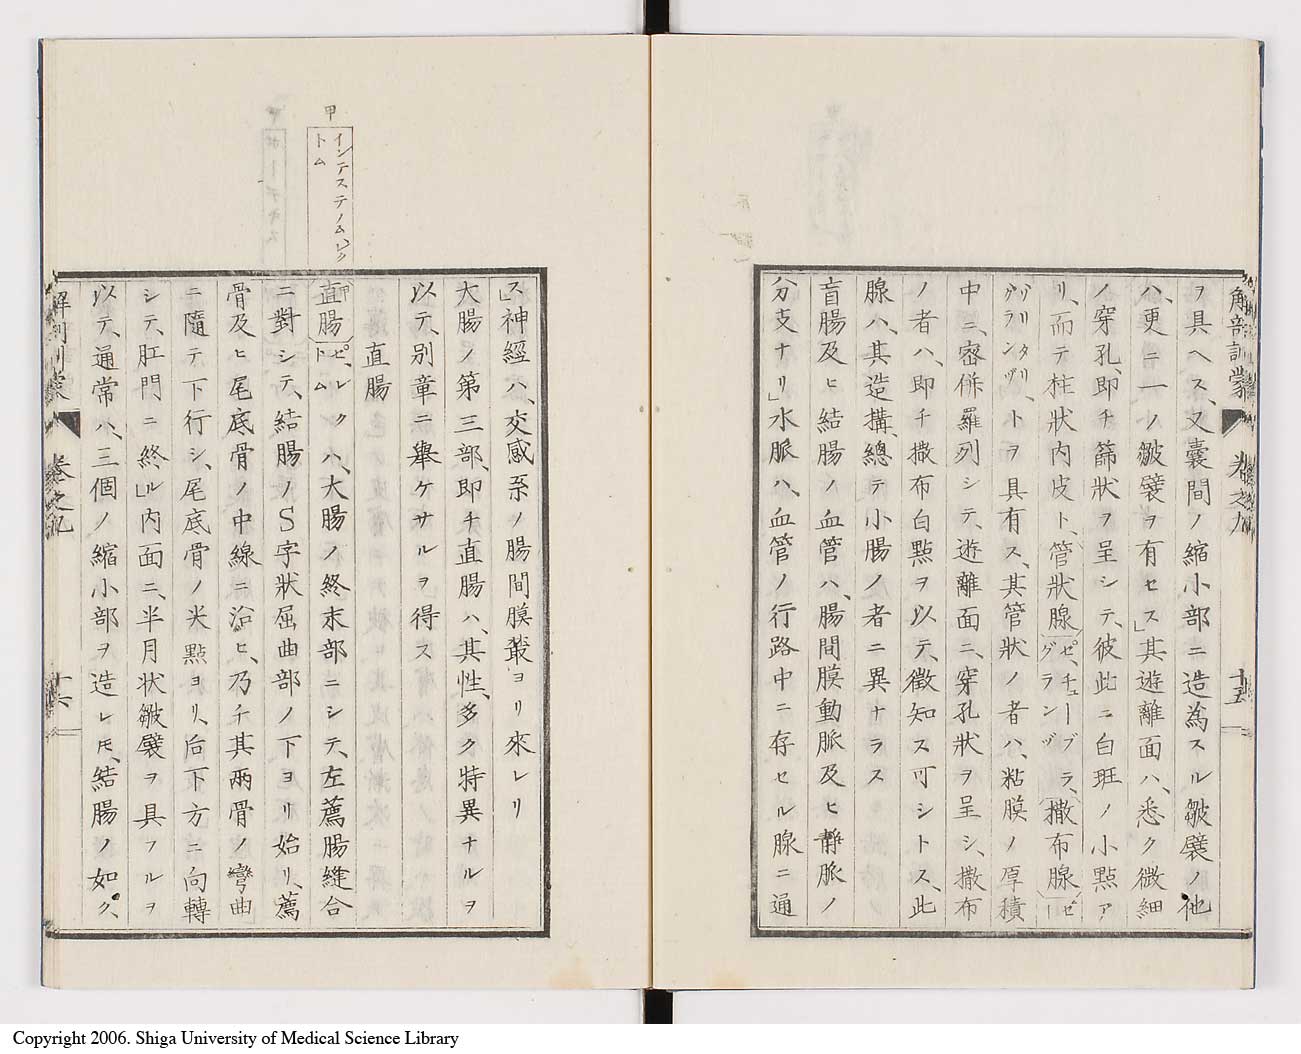 解剖訓蒙 卷之九 十五
ヲ具ヘス、又囊間ノ縮小部ニ造為スル皺襞ノ他
ハ、更ニ一ノ皺襞ヲ有セス」其遊離面ハ、悉ク微細
ノ穿孔、即チ篩狀ヲ呈シテ、彼此ニ白斑ノ小點ア
リ、而テ柱狀内皮ト、管狀腺(ゼ、チューブラ、グランヅ)撒布腺(ゼ、
ソリタリー、グランヅ)トヲ具有ス、其管狀ノ者ハ、粘膜ノ厚積
中ニ、密併羅列シテ、遊離面ニ、穿孔狀ヲ呈シ、撒布
ノ者ハ、即チ撒布白點ヲ以テ、徴知ス可シトス、此
腺ハ、其造搆、總テ小腸ノ者ニ異ナラス
盲腸及ヒ結腸ノ血管ハ、腸間膜動脈及ヒ靜脈ノ
分支ナリ」水脈ハ、血管ノ行路中ニ存セル腺ニ通
ス」神經ハ、交感系ノ腸間膜叢ヨリ來レリ
大腸ノ第三部、即チ直腸ハ、其性、多ク特異ナルヲ
以テ、別章ニ舉ケサルヲ得ス
直腸
甲
インテステノム、レク
トム
甲直腸(ピ、レクトム)ハ、大腸ノ終末部ニシテ、左薦腸縫合
ニ對シテ、結腸ノS字狀屈曲部ノ下ヨリ始リ、薦
骨及ヒ尾底骨ノ中線ニ沿ヒ、乃チ其兩骨ノ彎曲
ニ隨テ下行シ、尾底骨ノ尖點ヨリ、后下方ニ向轉
シテ、肛門ニ終ル」内面ニ、半月狀皺襞ヲ具フルヲ
以テ、通常ハ、三個ノ縮小部ヲ造レ𪜈、結腸ノ如ク、
解剖訓蒙 卷之九 十六
Copyright 2006. Shiga University of Medical Science Library